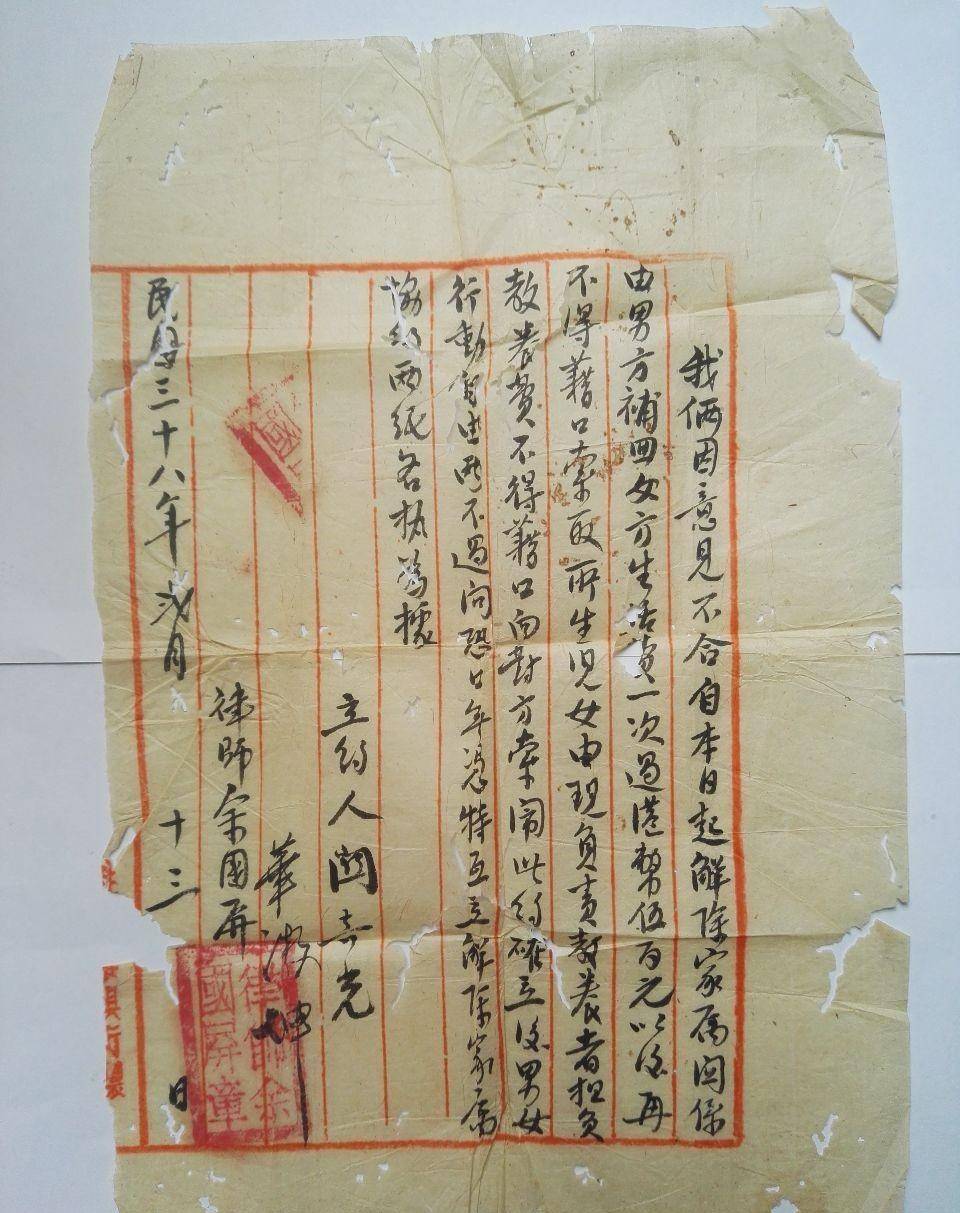 我倆因意見不合自本日起解除家屬関係
由男方補回女方生活費一次過港幣伍百元以後再
不得藉口索取所生児女由現負責教养者担負
教养費不得藉口向對方索鬧此約確立後男女
行動自由两不過問恐口年憑特互立解除家屬
協約两紙各执為據
立約人
華淑坤
律師余國屏
民國三十八年弍月十三日
律師余國屏章